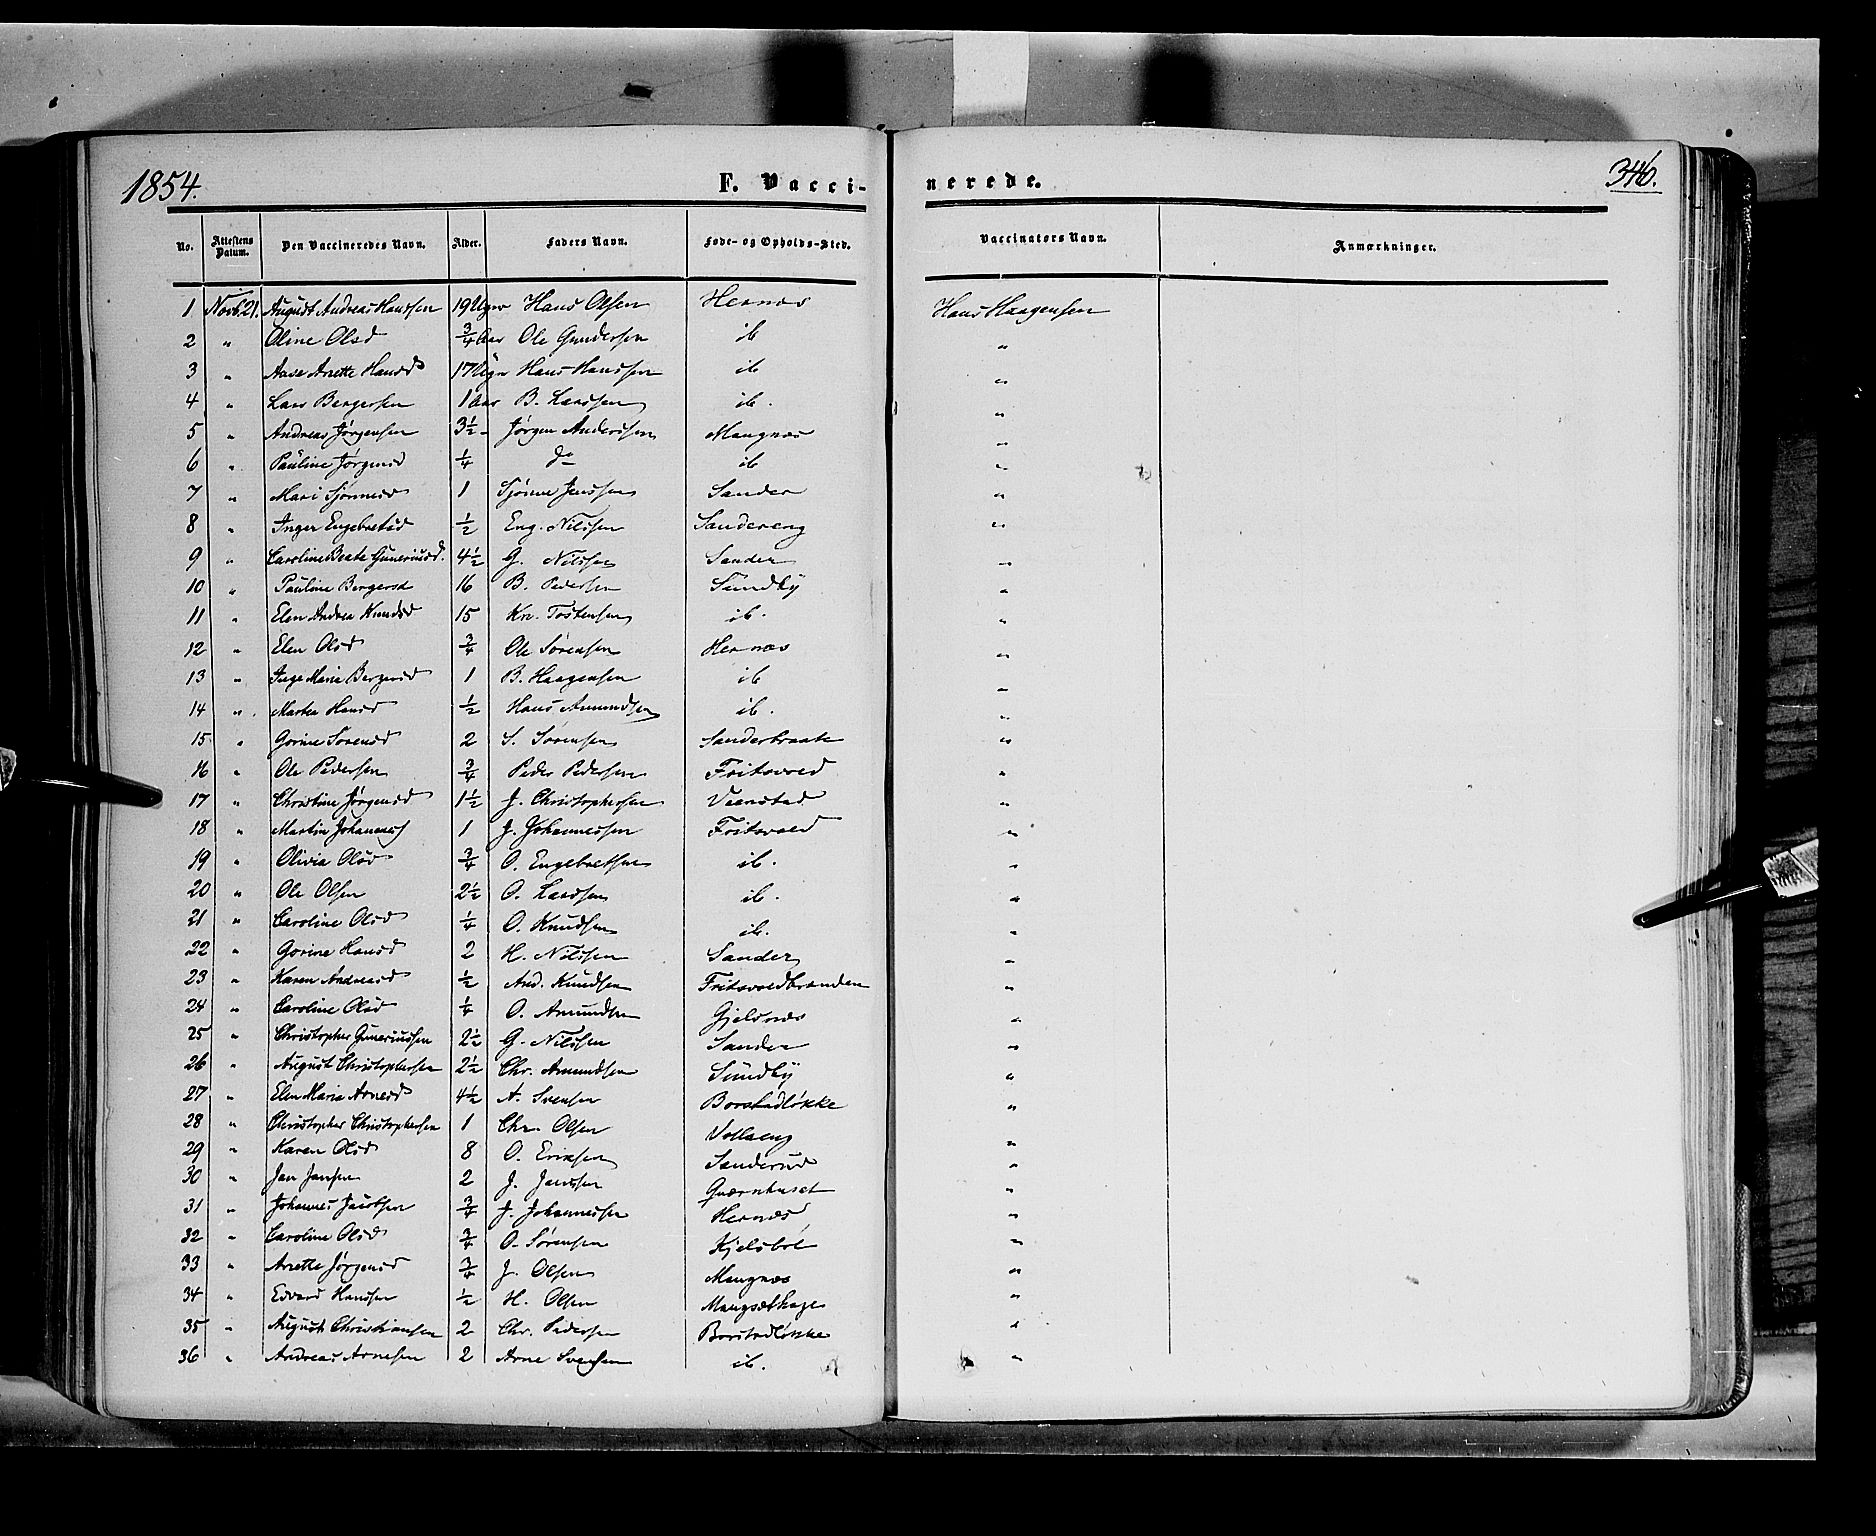 1854. F. Vacci- nerede. 346.
No. Attestens Datum. Den Vaccineredes Navn. Alder. Faders Navn. Føde- og Opholds-Sted. Vaccinators Navn. Anmærkninger.
1 Novb. 21. August Andreas Hanssen 19 Uger Hans Olsen Hernæs Hans Haagensen
2 " Oline Olsd 3/4 Aar Ole Gundersen ib "
3 " Aase Anette Hansd 17 Uger Hans Hanssen ib "
4 " Lars Bergersen 1 Aar B. Larssen ib. "
5 " Andreas Jørgensen 3 1/2 - Jørgen Anderssen Mangnæs "
6 " Pauline Jørgensd 1/4 do ib "
7 " Mari Sjønnesd 1 Sjønne Jenssen Sander "
8 " Inger Engebretsd 1/2 Eng. Nilssen Sandereng "
9 " Caroline Beate Guneriusd. 4 1/2 G. Nilssen Sander "
10 " Pauline Bergersd 16 B. Pedersen Sundby "
11 " Elen Andrea Knudsd 15 Kn. Tostensen ib. "
12 " Elen Olsd 3/4 Ole Sørensen Hernæs "
13 " Inge Marie Bergersd 1 B. Haagensen ib "
14 " Marthea Hansd 1/2 Hans Amundsen ib. "
15 " Gorine Sørensd 2 S. Sørensen Sanderbraate "
16 " Ole Pedersen 3/4 Peder Pedersen Fritsvold "
17 " Christine Jørgensd 1 1/2 J. Christophersen Veenstad "
18 " Martin Johannes 1 J. Johannessen Fritsvold "
19 " Olivia Olsd 3/4 O. Engebretsen ib. "
20 " Ole Olsen 2 1/2 O. Larssen ib. "
21 " Caroline Olsd 1/4 O. Knudsen ib. "
22 " Gorine Hansd 2 H. Nilssen Sander "
23 " Karen Andreasd 1/2 And. Knudsen Fritsvoldbraaden "
24 " Caroline Olsd 1/4 O. Amundsen Gjelsnæs "
25 " Christopher Guneriussen 2 1/2 G. Nilssen Sander "
26 " August Christophersen 2 1/2 Chr. Amundsen Sundby "
27 " Elen Maria Arnesd 4 1/2 A. Svensen Borstadløkke "
28 " Christopher Christophersen 1 Chr. Olsen Vollaeng "
29 " Karen Olsd 8 O. Eriksen Sanderud "
30 " Jan Jansen 2 J. Janssen Quærnhuset "
31 " Johannes Jacobsen 3/4 J. Johannessen Hernæs "
32 " Caroline Olsd 3/4 O. Sørensen Kjelsbøl "
33 " Anette Jørgensd 3/4 J. Olsen Mangnæs "
34 " Edvard Hanssen 1/2 H. Olsen Mangsethage "
35 " August Christiansen 2 Chr. Pedersen Borstadløkke "
36 " Andreas Arnesen 2 Arne Svensen ib. "